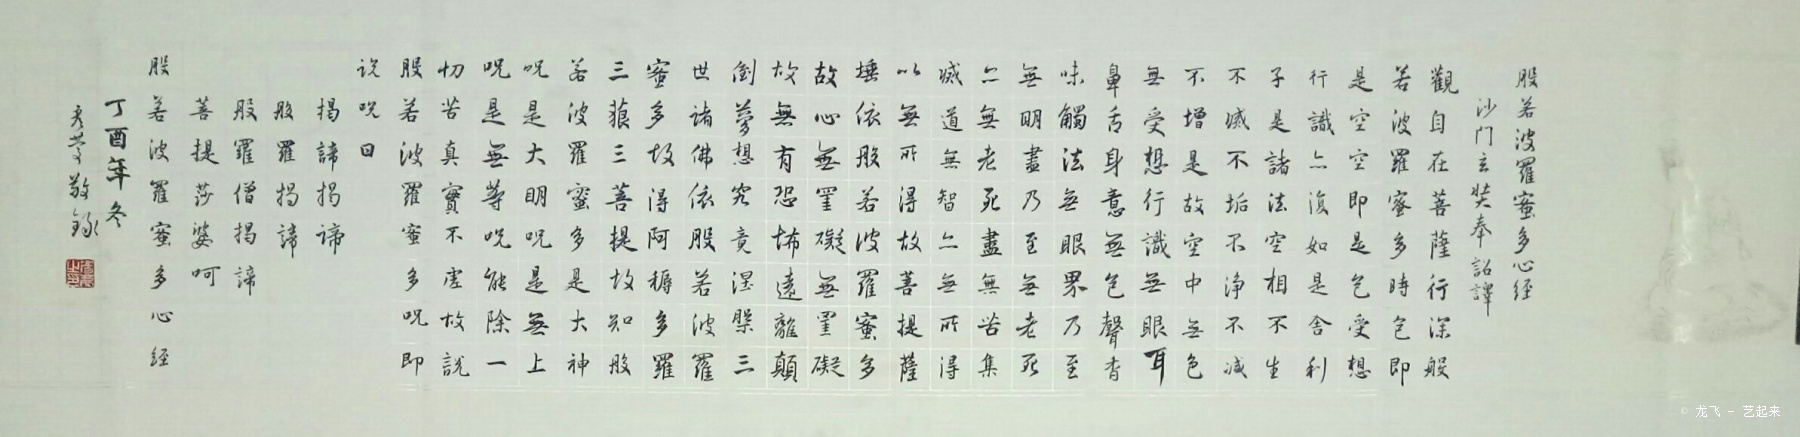 般若波羅蜜多心経
沙门玄奘奉詔譯
觀自在菩薩行深般
若波羅蜜多時色即
是空空即是色受想
行識亦復如是舍利
子是諸法空相不生
不滅不垢不净不减
不增是故空中無色
無受想行識無眼耳
鼻舌身意無色聲香
味觸法無眼界乃至
無明盡乃至無老死
亦無老死盡無苦集
滅道無智亦無所得
以無所得故菩提薩
埵依般若波羅蜜多
故心無罣礙無罣礙
故無有恐怖遠離顛
倒夢想究竟涅槃三
世諸佛依般若波羅
蜜多故得阿耨多羅
三藐三菩提故知般
若波羅蜜多是大神
呪是大明呪是無上
呪是無等呪能除一
切苦真實不虚故説
般若波羅蜜多呪即
説呪曰
揭諦揭諦
般羅揭諦
般羅僧揭諦
菩提莎婆呵
般若波羅蜜多心経
丁酉年冬
敬録
© 龙飞 - 艺起来